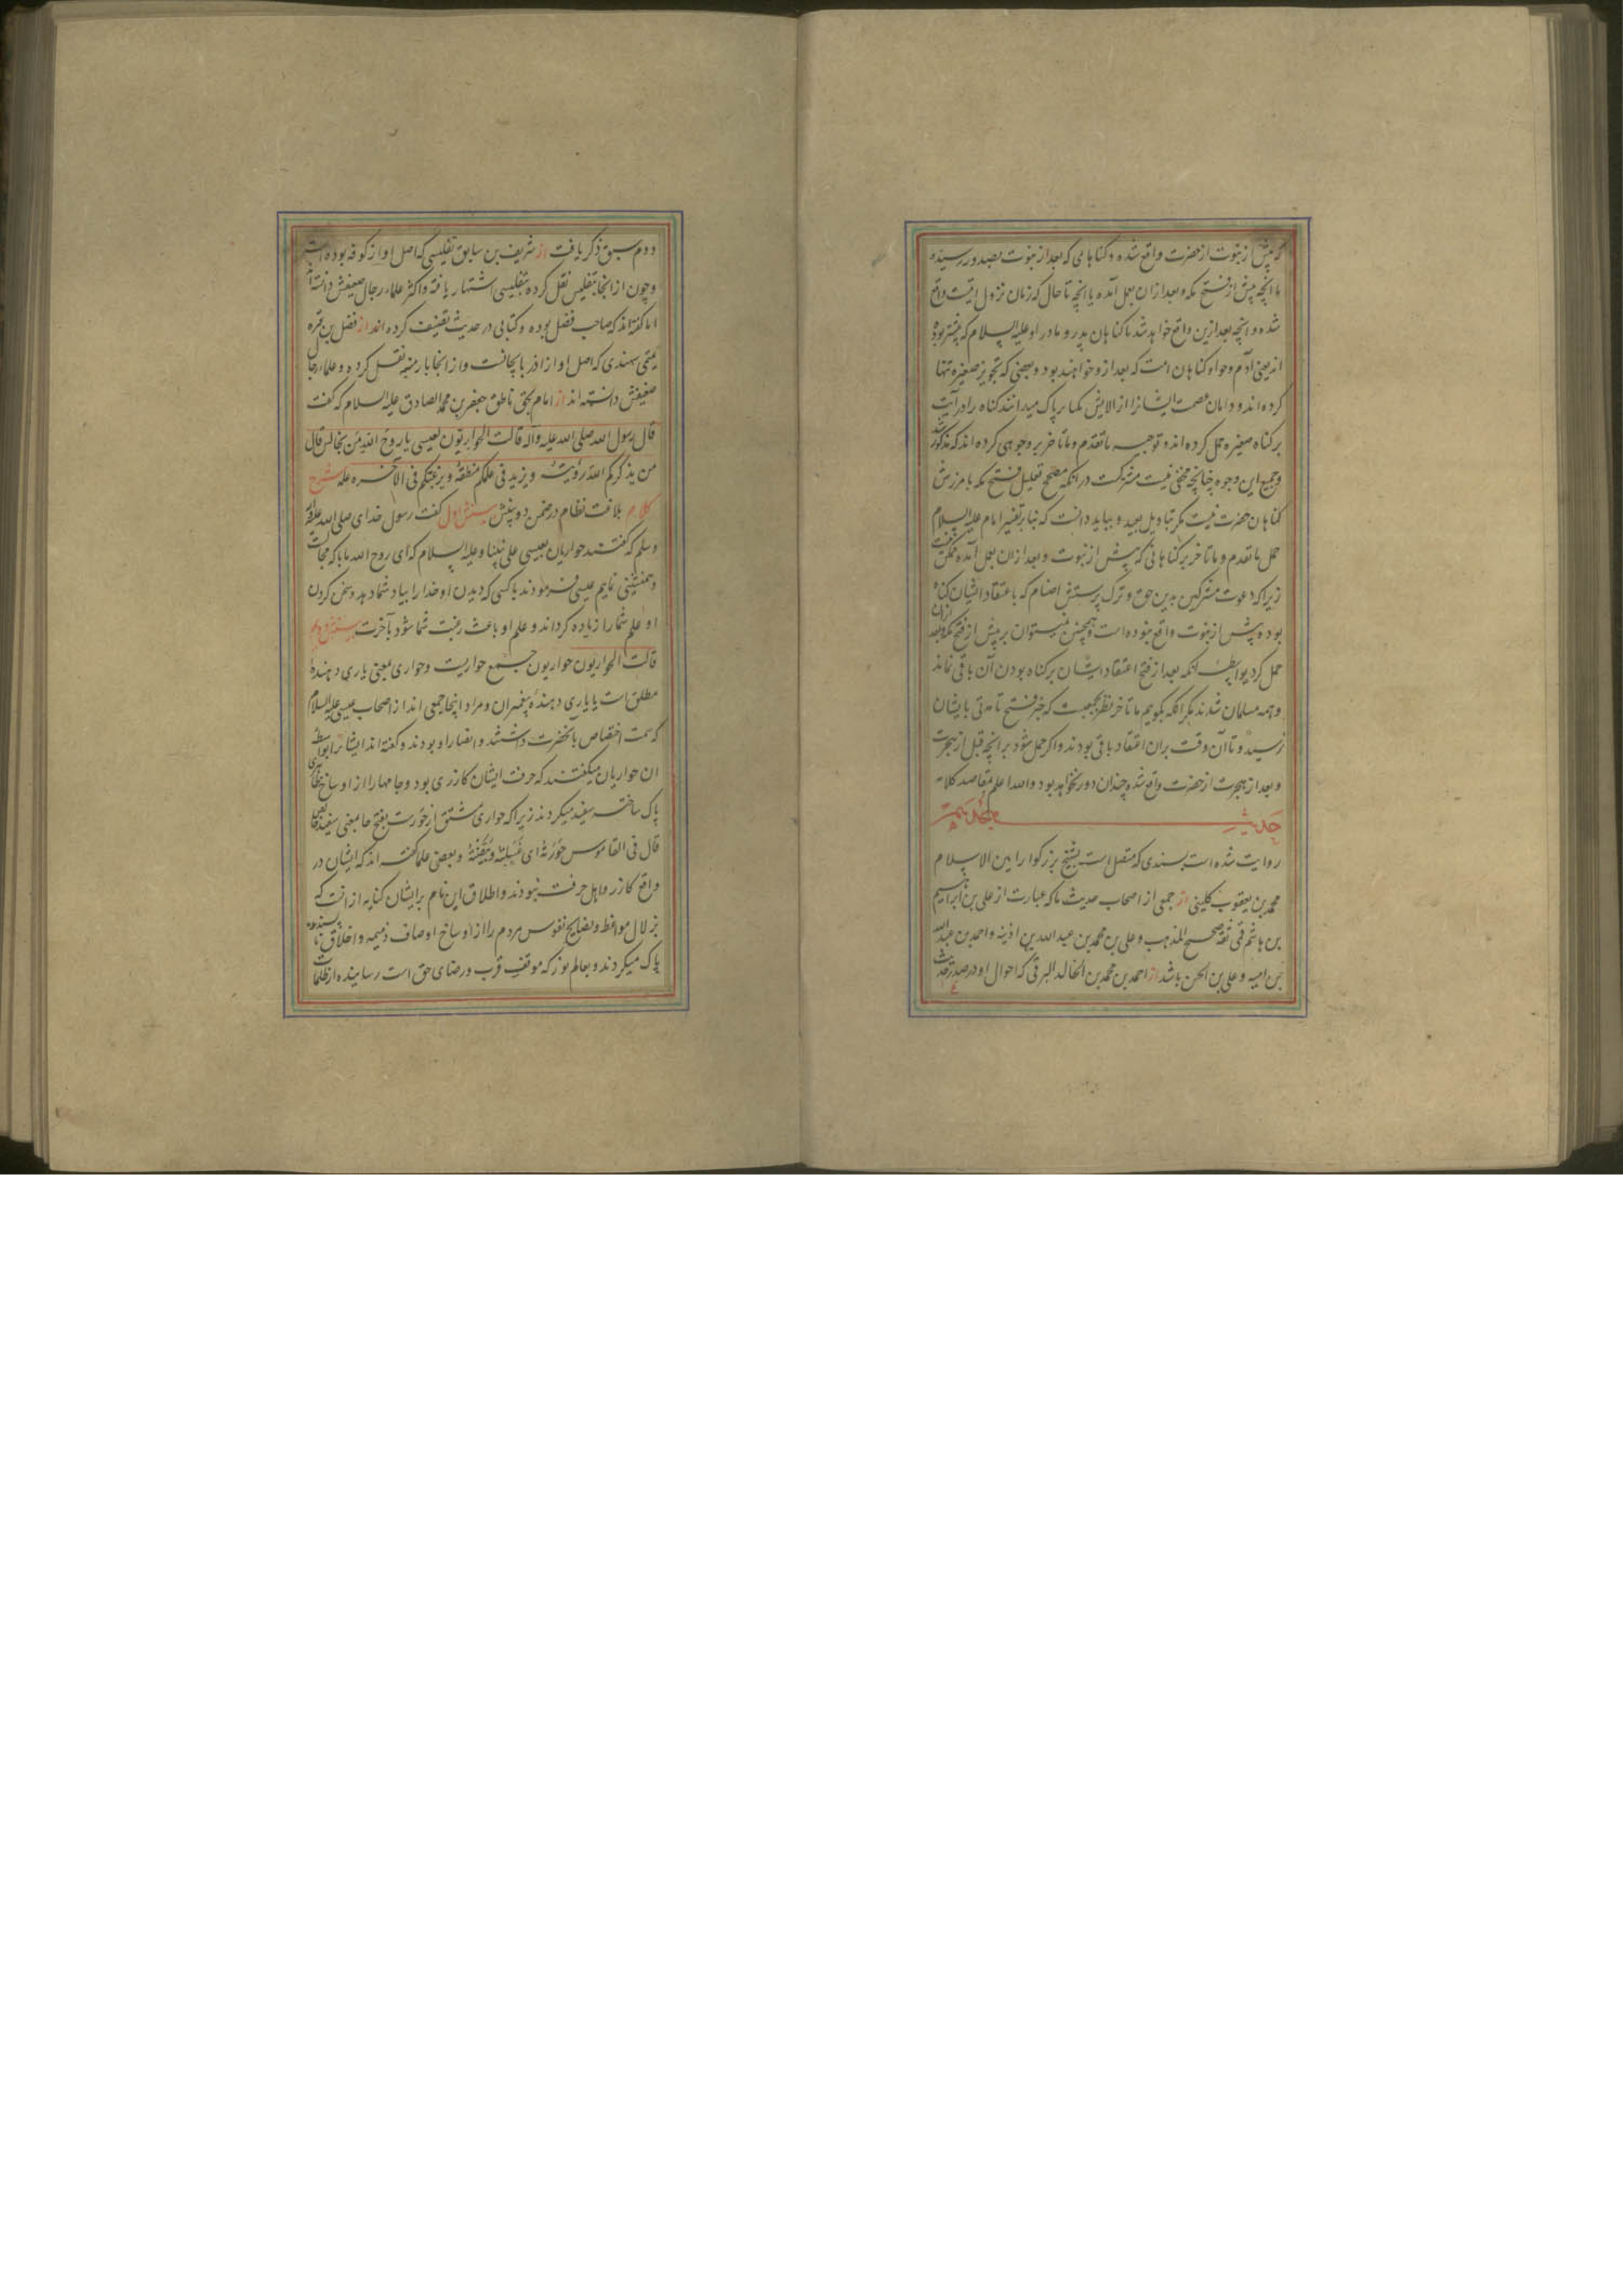 که پیش از نبوت از حضرت واقع شده و کناهای که بعد از نبوت بصدور رسیده
یا انچه پیش از فتح مکه و بعد ازان بعمل آمده یا انچه تا حال که زمان نزول ایتست واقع
شده و انچه بعد ازین واقع خواهد شد یا کناهان پدر و مادر او علیه السلام که پیشتر بوده
اند یعنی آدم و حوا و کناهان امت که بعد ازو خواهند بود و بعضی که تجویز صغیره تنها
کرده اند و دامان عصمت ایشانرا از الایش کبایر پاک میدانند کناه را در آیت
بر کناه صغیره حمل کرده اند و توجیه ما تقدم و ما تاخر بر وجوهی کرده اند که مذکور شد
و جمیع این وجوه چنانچه مخفی نیست مشترکست در انکه مصحح تعلیل فتح مکه بامرزش
کناهان حضرت نیست مکر بتاویل بعید و بباید دانست که بنا بر تفسیر امام علیه السلام
حمل ما تقدم و ما تاخر بر کناهانی که پیش از نبوت و بعد ازان بعمل آمده ممکن نیست
زیرا که دعوت مشرکین بدین حق و ترک پرستش اصنام که باعتقاد ایشان کناه
بوده پیش از نبوت واقع نبوده است و همچنین نمیتوان بر پیش از فتح مکه و بعد ازان
حمل کرد بواسطه انکه بعد از فتح اعتقاد ایشان بر کناه بودن آن باقی نماند
و همه مسلمان شدند مکر انکه بکوییم ما تاخر نظر بجمعیست که خبر فتح تا مدتی بایشان
نرسیده و تا آن وقت بران اعتقاد باقی بودند و اکر حمل شود بر انچه قبل از هجرت
و بعد از هجرت از حضرت واقع شده چندان دور نخواهد بود والله اعلم بمقاصد کلامه
حدیث
روایت شده است بسندی که متصل است بشیخ بزرکوار امین الاسلام
محمد بن یعقوب کلینی از جمعی از اصحاب حدیث ما که عبارت از علی بن ابراهیم
بن هاشم قمی ثقه صحیح المذهب و علی بن محمد بن عبدالله بن اذینه و احمد بن عبدالله
بن امیه و علی بن الحسن باشد از احمد بن محمد بن الخالد البرقی که احوال او در صدر حدیث
دوم سبق ذکر یافت از شریف بن سابق تفلیسی که اصل او از کوفه بوده است
و چون از انجا بتفلیس نقل کرده بتفلیسی اشتهار یافته و اکثر علماء رجال ضعیفش دانسته اند
اما کفته اند که صاحب فضل بوده و کتابی در حدیث تصنیف کرده اند از فضل بن قره
تمیمی سهندی که اصل او از اذربایجانست و از انجا بارمنیه نقل کرده و علماء رجال
ضعیفش دانسته اند از امام بحق ناطق جعفر بن محمد الصادق علیه السلام که کفت
قال رسول الله صلی الله علیه وآله قالت الحواریون لعیسی یا روح الله من نجالس قال
من یذکرکم الله رؤیته و یزید فی علمکم منطقه و یرغبکم فی الآخرة عمله شرح
کلام بلاغت نظام در ضمن دو بینش بینش اول کفت رسول خدای صلی الله علیه وآله
وسلم که کفتند حواریان بعیسی علی نبینا و علیه السلام که ای روح الله ما با که مجالست
و همنشینی نماییم عیسی فرمودند با کسی که دیدن او خدا را بیاد شما دهد و سخن کردن
او علم شما را زیاده کرداند و علم او باعث رغبت شما شود بآخرت بینش دویم
قالت الحواریون حواریون جمع حواریست و حواری بمعنی یاری دهنده
مطلق است یا یاری دهنده پیغمبران و مراد اینجا جمعی اند از اصحاب عیسی علیه السلام
که سمت اختصاص بآنحضرت داشتند و انصار او بودند و کفته اند ایشانرا بواسطه
ان حواریان میکفتند که حرفت ایشان کازری بود و جامها را از اوساخ ظاهری
پاک ساخته سفید میکردند زیرا که حواری مشتق از حورست بفتح حا بمعنی سفید
قال فی القاموس حورته ای غسلته و بیضته و بعضی علما کفته اند که ایشان در
واقع کازر و اهل حرفت نبودند و اطلاق این نام بر ایشان کنایه از انست که
بزلال مواعظ و نصایح نفوس مردم را از اوساخ اوصاف ذمیمه و اخلاق ناپسندیده
پاک میکردند و بعالم نور که موقف قرب و رضای حق است رسانیده از ظلمات